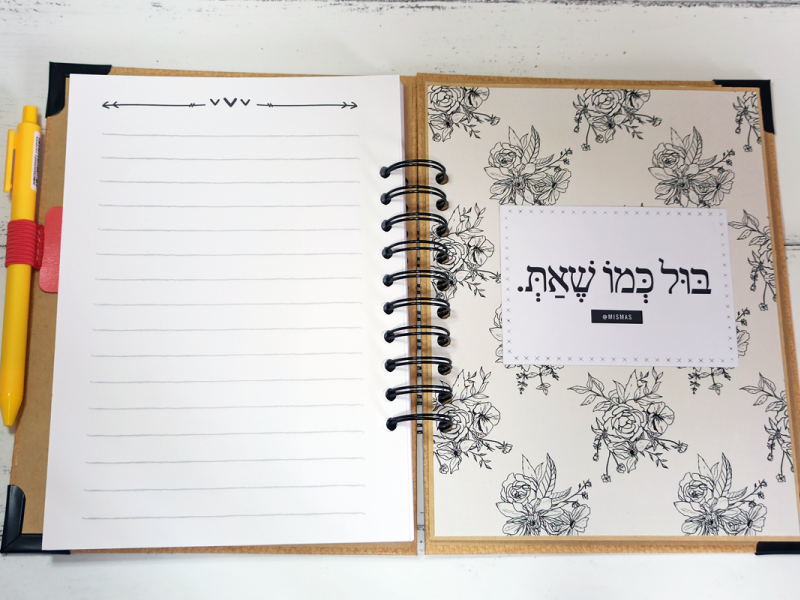 בּוּל כְּמוֹ שֶׁאַתְּ.
@MISMAS